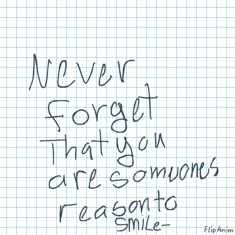 Never
forget
That you
are somuones
reason to
SMiLe-
FlipAnim